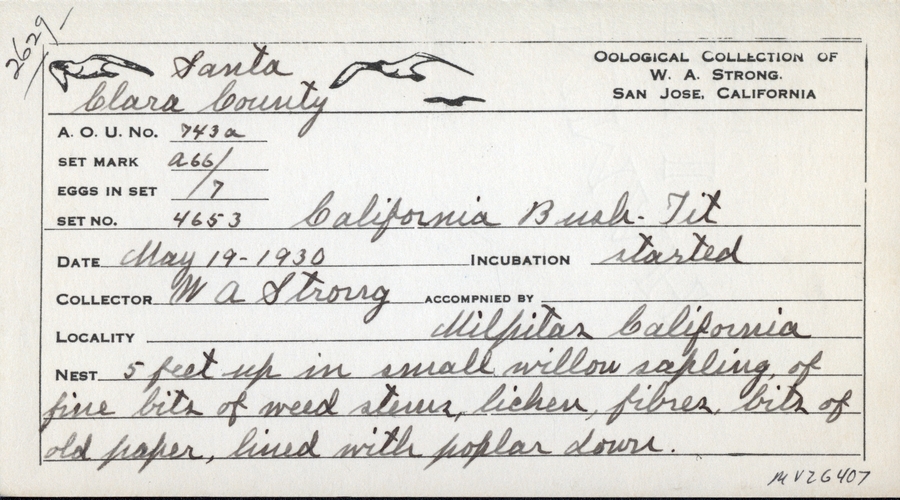 2629/
Santa
Clara County
OOLOGICAL COLLECTION OF
W. A. STRONG.
SAN JOSE, CALIFORNIA
A. O. U. NO. 743a
SET MARK a66/
EGGS IN SET /7
SET NO. 4653 California Bush-Tit
DATE May 19-1930 INCUBATION started
COLLECTOR W A Strong ACCOMPNIED BY
LOCALITY Milpitas California
NEST 5 feet up in small willow sapling, of
fine bits of weed stems, lichen, fibres, bits of
old paper, lined with poplar down.
MVZ6407